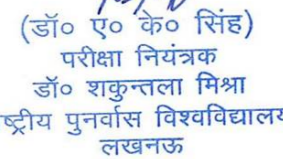 (डॉ० ए० के० सिंह)
परीक्षा नियंत्रक
डॉ० शकुन्तला मिश्रा
ष्ट्रीय पुनर्वास विश्वविद्यालय
लखनऊ